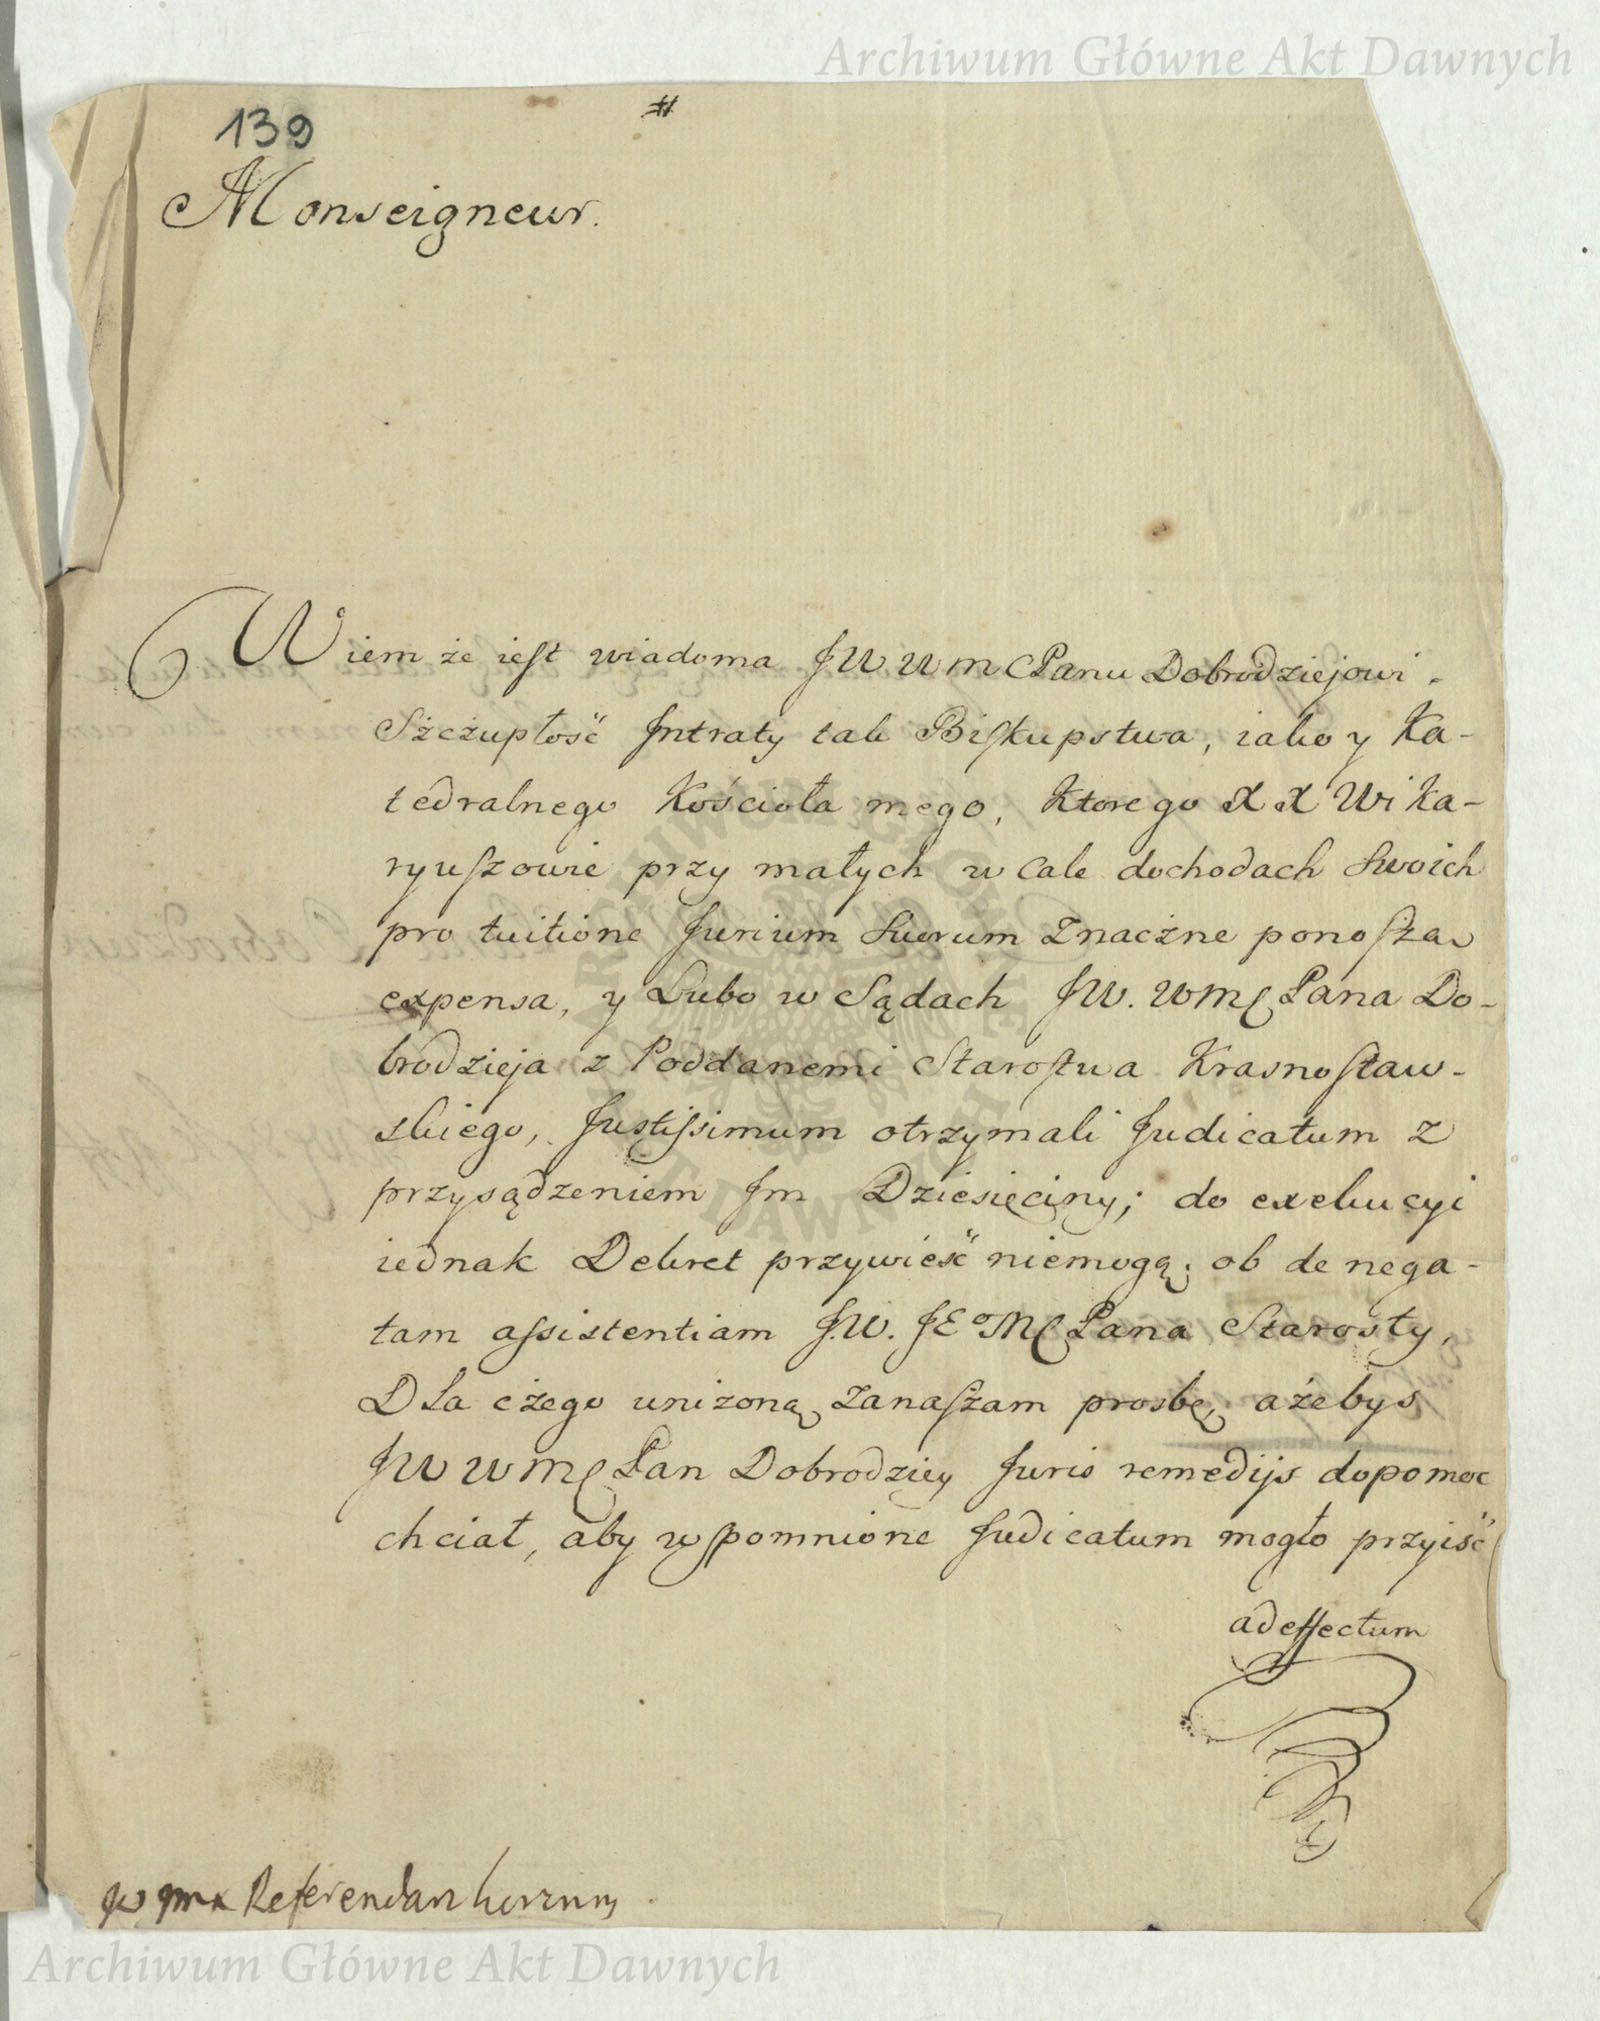 Archiwum Główne Akt Dawnych
139
#
Monseigneur.
Wiem że iest wiadoma JW WMC Panu Dobrodziejowi.
Szczupłość Intraty tak Biskupstwa, iako y Ka-
tedralnego Kościoła mego, Ktorego XX Wika-
ryuszowie przy małych w cale dochodach Swoich
pro tuitione Jurium Suorum Znaczne ponosza
expensa, y Lubo w Sądach JW. WMC Pana Do-
brodzieja z Poddanemi Starostwa Krasnostaw-
skiego, Justissimum otrzymali Judicatum z
przysądzeniem Im Dziesięciny; do exekucyi
iednak Dekret przywieść niemogą; ob denega-
tam assistentiam J.W. JEoMC Pana Starosty,
Dla czego unizoną zanaszam prosbę, ażebys
JW WMC Pan Dobrodziey Juris remedijs dopomoc
chciał, aby wspomnione Judicatum mogło przyiść
ad effectum
JW Referendarz koronny
Archiwum Główne Akt Dawnych